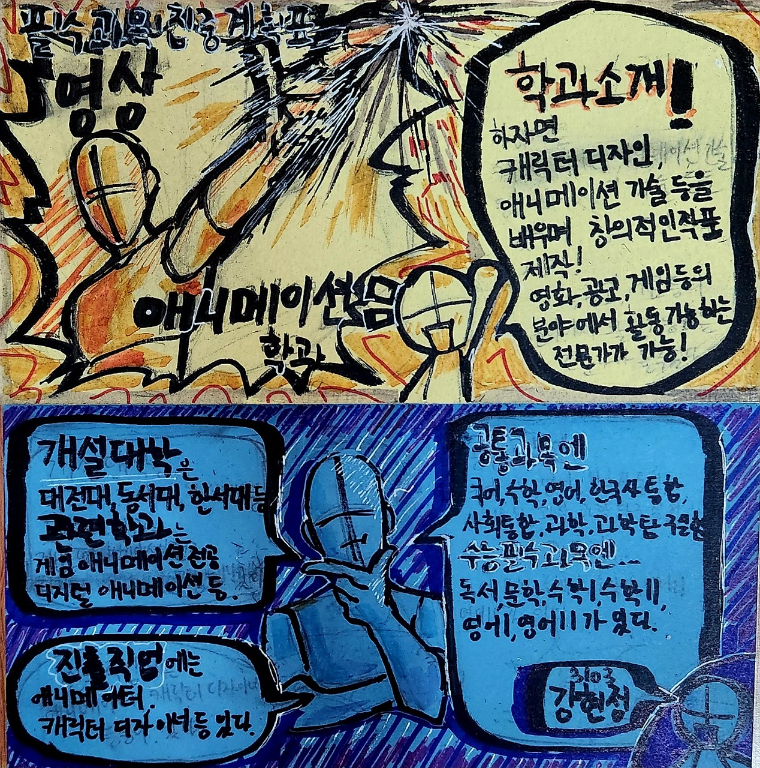 필수과목 진중계획표
영상
애니메이션
학과
학과소개!
하자면
캐릭터 디자인,
애니메이션 기술 등을
배우며 창의적인 작품
제작!
영화, 광고, 게임등의
분야에서 활동 가능하는
전문가가 가능!
개설대학은
대전대, 동서대, 한서대 등
관련학과는
게임 애니메이션 전공
디지털 애니메이션 등.
진출직업에는
애니메이터,
캐릭터 디자이너 등 있다.
공통과목엔
국어, 수학, 영어, 한국사, 통합,
사회통합, 과학, 과학탐구실험
수능필수과목엔...
독서, 문학, 수학I, 수학II,
영어I, 영어II가 있다.
3103
강현정